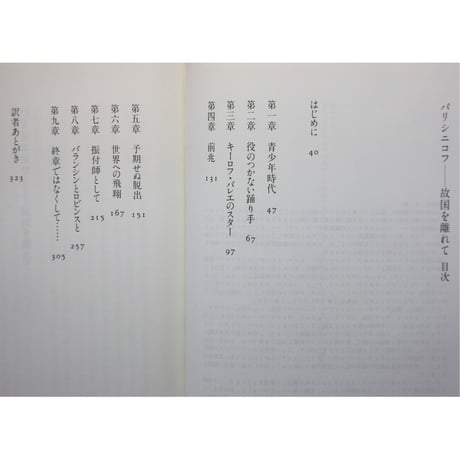 バリシニコフ——故国を離れて 目次
はじめに 40
第一章 青少年時代 47
第二章 役のつかない踊り手 67
第三章 キーロフ・バレエのスター 97
第四章 前兆 131
第五章 予期せぬ脱出 151
第六章 世界への飛翔 167
第七章 振付師として 215
第八章 バランシンとロビンスと 257
第九章 終章ではなくして…… 305
訳者あとがき 323